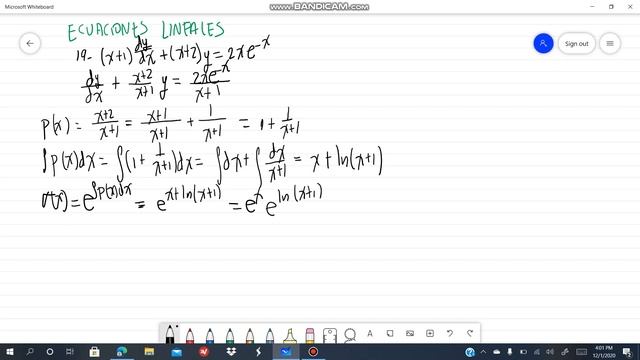 Microsoft Whiteboard
www.BANDICAM.com
Sign out
ECUACIONES LINEALES
19- (x+1) dy/dx + (x+2) y = 2xe^-x
dy/dx + x+2/x+1 y = 2xe^-x/x+1
P(x) = x+2/x+1 = x+1/x+1 + 1/x+1 = 1 + 1/x+1
∫P(x)dx = ∫(1 + 1/x+1)dx = ∫dx + ∫dx/x+1 = x + ln(x+1)
= e^∫P(x)dx = e^x+ln(x+1) = e^x e^ln(x+1)
4:01 PM
12/1/2020